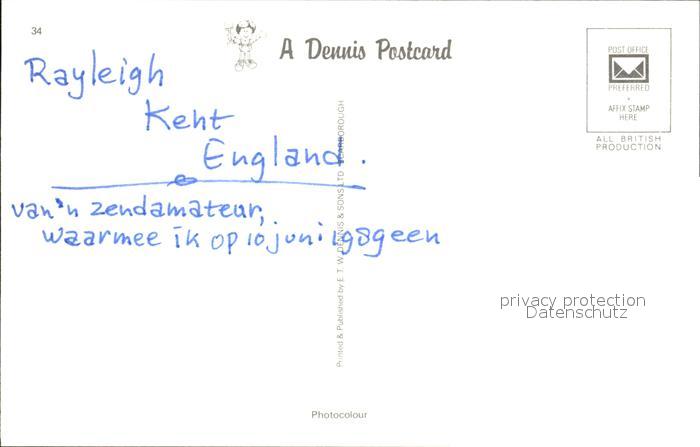 34
A Dennis Postcard
POST OFFICE
PREFERRED
AFFIX STAMP
HERE
ALL BRITISH
PRODUCTION
Rayleigh
Kent
England.
van'n zendamateur,
waarmee ik op 10 juni
Printed & Published by E. T. W. DENNIS & SONS LTD SCARBOROUGH
privacy protection
Datenschutz
Photocolour